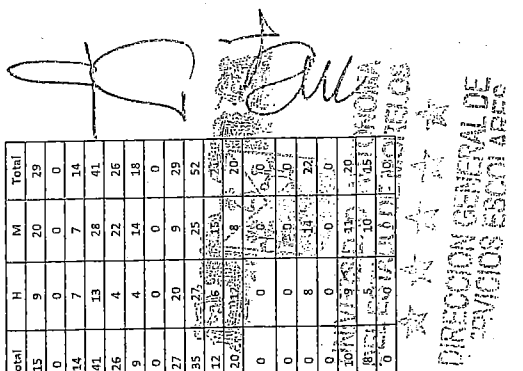 otal H M Total
15 9 20 29
0 0 0 0
14 7 7 14
41 13 28 41
26 4 22 26
9 4 14 18
0 0 0 0
27 20 9 29
35 27 25 52
12 6 15 21
20 12 8 20
0 0 0 0
0 0 0 0
0 8 14 22
0 0 0 0
10 9 11 20
8 5 10 15
0 0 0
DIRECCION GENERAL DE
RVICIOS ESCOLARES